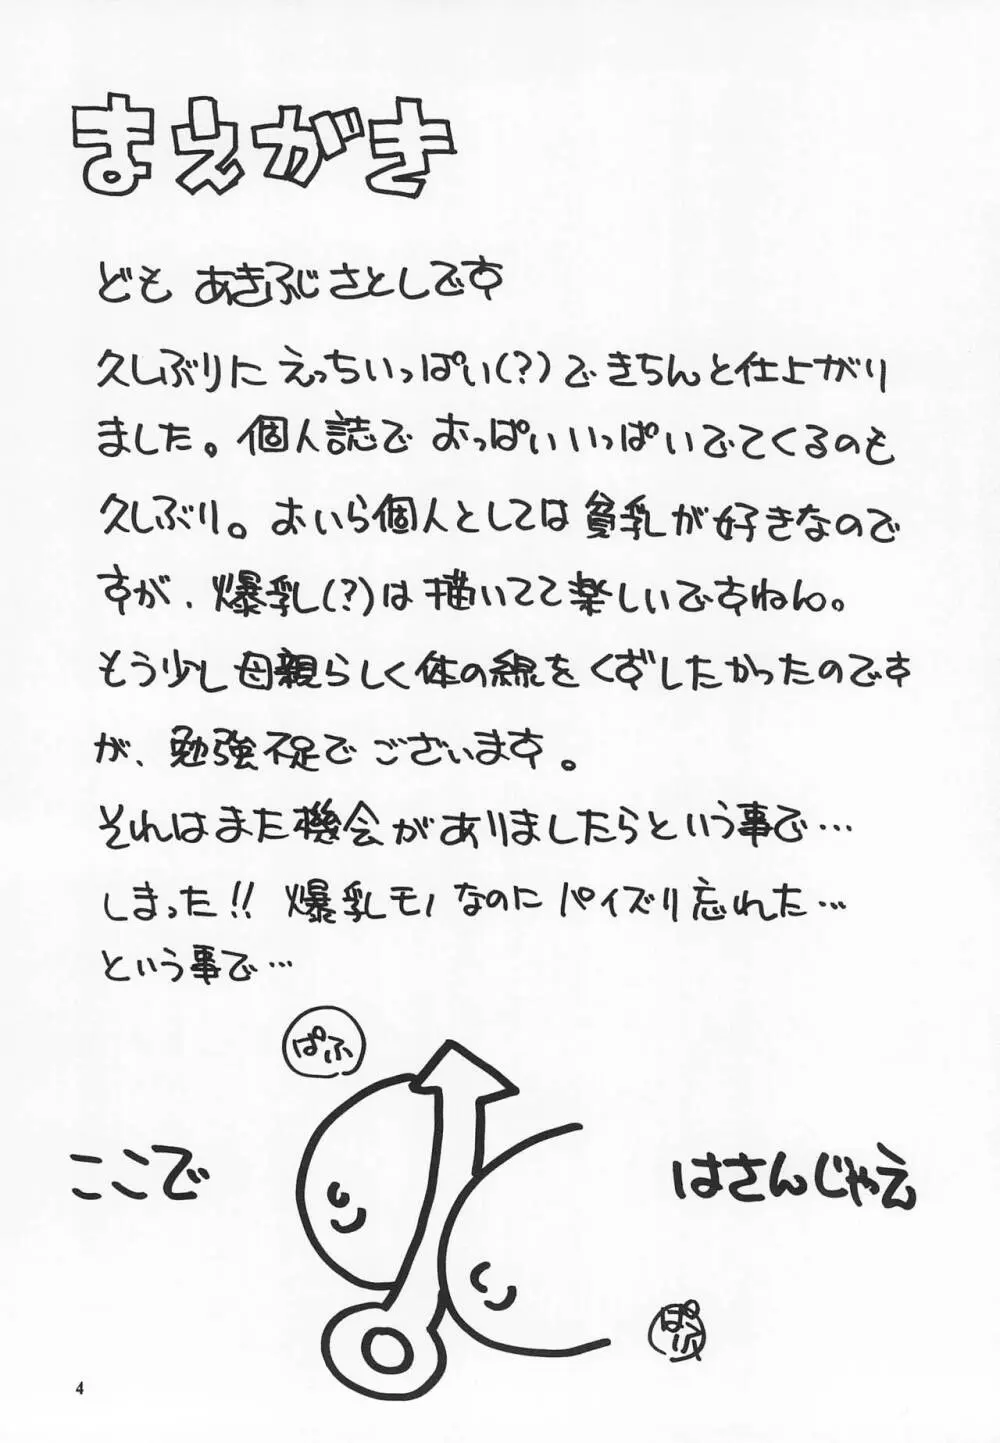 まえがき
ども あきふじさとしです
久しぶりに えっちいっぱい(?)で きちんと仕上がり
ました。個人誌で おっぱいいっぱいでてくるのも
久しぶり。おいら個人としては貧乳が好きなので
すが、爆乳(?)は描いてて楽しいですねん。
もう少し母親らしく体の線をくずしたかったのです
が、勉強不足でございます。
それはまた機会がありましたらという事で…
しまった!! 爆乳モノなのにパイズリ忘れた…
という事で…
ぱふ
ここで
はさんじゃえ
ぱふ
4